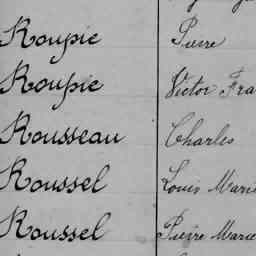 Roupie Pierre
Roupie Victor Fra
Rousseau Charles
Roussel Louis Marie
Roussel Pierre Marie